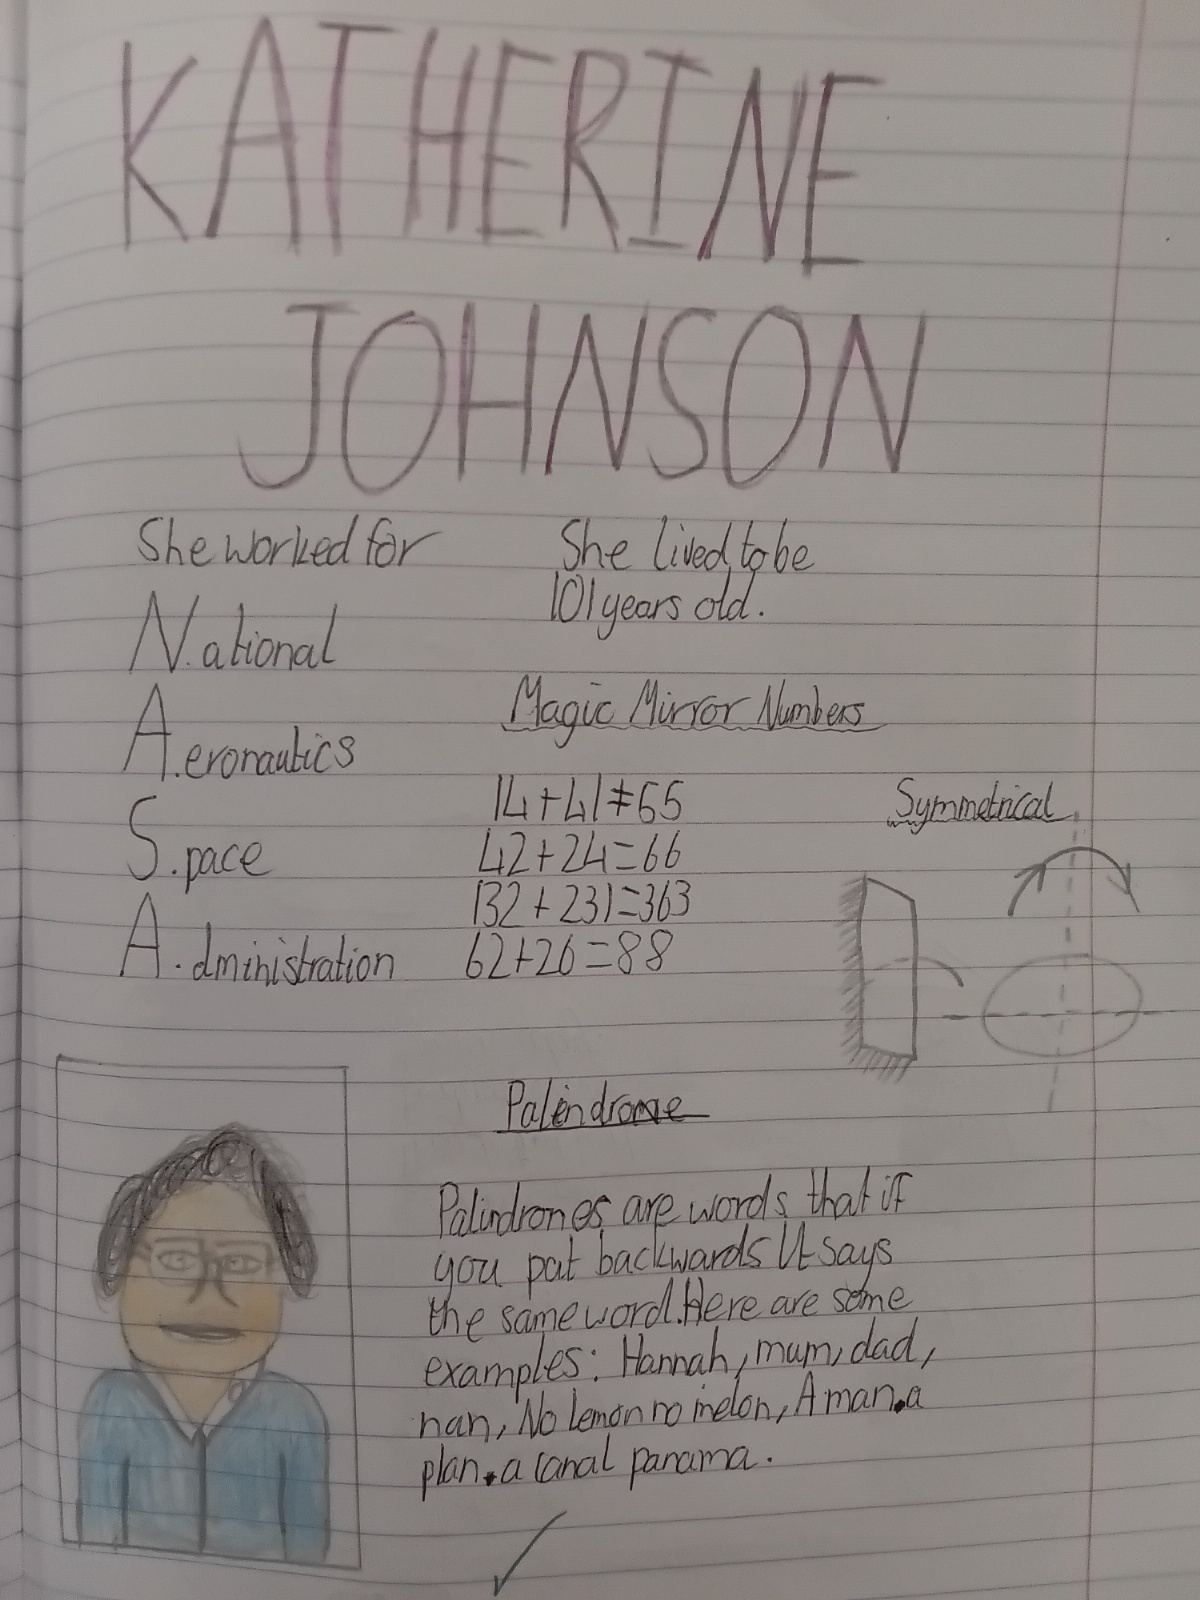 KATHERINE
JOHNSON
She worked for
N.ational
A.eronautics
S.pace
A.dministration
She lived to be
101 years old.
Magic Mirror Numbers
14+41≠65
42+24=66
132+231=363
62+26=88
Symmetrical
Palindrome
Palindromes are words that if
you put backwards It says
the same word. Here are some
examples: Hannah, mum, dad,
nan, No lemon no melon, A man.a
plan.a canal panama.